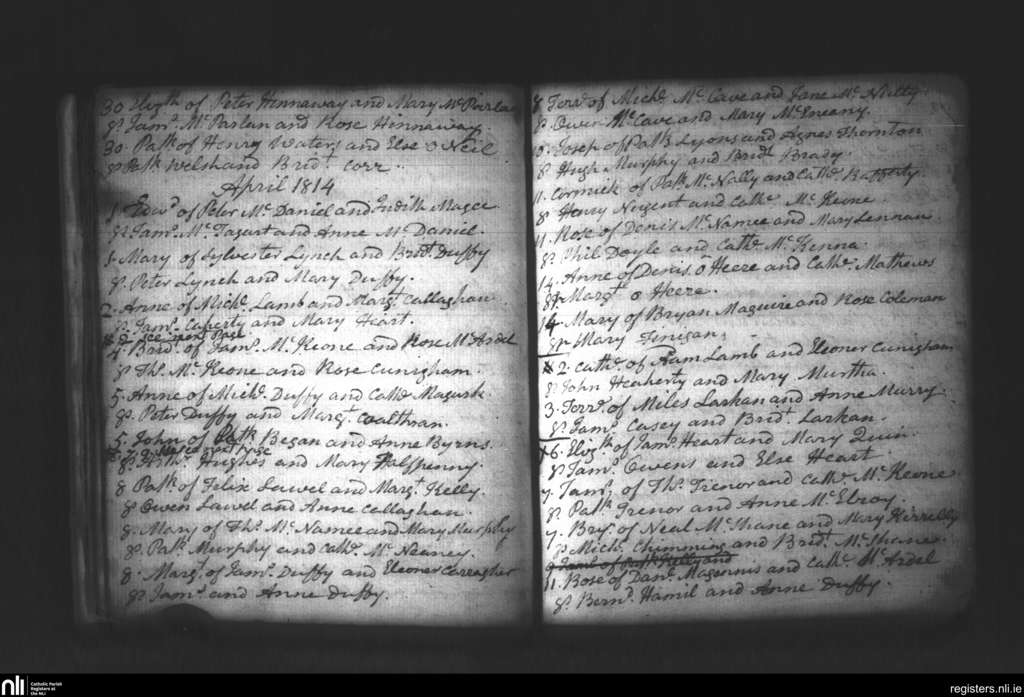 30 Elizth of Peter Hennaway and Mary Mc Parla
Sp. Jams. Mc Parlan and Rose Hinnaway.
30. Patk of Henry Waters and Else o Neil
Sp Patk Welsh and Bridt. Corr.
April 1814
1. Edwd of Peter Mc Daniel and Judith Magee
Sp. Jams. Mc Tagart and Anne Mc Daniel.
1. Mary of Sylvester Lynch and Bridt. Duffy
Sp. Peter Lynch and Mary Duffy.
2. Anne of Michl. Lamb and Margt. Callaghan.
Sp. Jams. Caherty and Mary Heart.
4. Bridt. of Jams. Mc Keone and Rose Mc Ardel
Sp. Ths. Mc Keone and Rose Cunigham.
5. Anne of Michl. Duffy and Cathe. Magurk.
Sp. Peter Duffy and Margt. Walthran.
5. John of Patk. Began and Anne Byrns.
Sp. Arthr. Hughes and Mary Halfpenny.
8 Patk of Felix Lawel and Margt. Kelly.
Sp Owen Lawel and Anne Callaghan.
8. Mary of Ths. Mc Namee and Mary Murphy
Sp. Patk. Murphy and Cathe. Mc Neaney.
8. Margt. of Jams. Duffy and Eleoner Careagher
Sp. Jams. and Anne Duffy.
8 Terrs. of Michl. Mc Cave and Jane Mc Nulty
Sp. Owen Mc Cave and Mary Mc Eneany.
Joseph of Patk. Lyons and Agnes Thornton
Sp Hugh Murphy and Bridt. Brady.
11. Cormick of Patk. Mc Nally and Cathe. Rafferty.
Sp Henry Nugent and Cathe. Mc Keone.
11. Rose of Denis Mc Namee and Mary Lennan.
Sp. Phil Doyle and Cathe. Mc Kenna.
14. Anne of Denis o Heere and Cathe. Mathews
Sp Margt. o Heere.
14. Mary of Bryan Maguire and Rose Coleman
Sp. Mary Finigan.
2. Cathe. of Adam Lamb and Eleoner Cunigham
Sp. John Heaherty and Mary Murtha.
3. Terrs. of Miles Larkan and Anne Murry.
Sp. Jams. Casey and Bridt. Larkan.
6. Elizth. of Jams. Heart and Mary Quin.
Sp. Jams. Owens and Else Heart.
7. Jams. of Ths. Trenor and Cathe. Mc Keone
Sp. Patk. Trenor and Anne Mc Elroy.
7. Bryn. of Neal Mc Shane and Mary Kerrelly
Sp Michl. Chimming and Bridt. Mc Shane.
11. Rose of Danl. Magennis and Cathe. Mc Ardel
Sp. Bernd. Hamil and Anne Duffy.
nli
Catholic Parish
Registers at
the NLI
registers.nli.ie